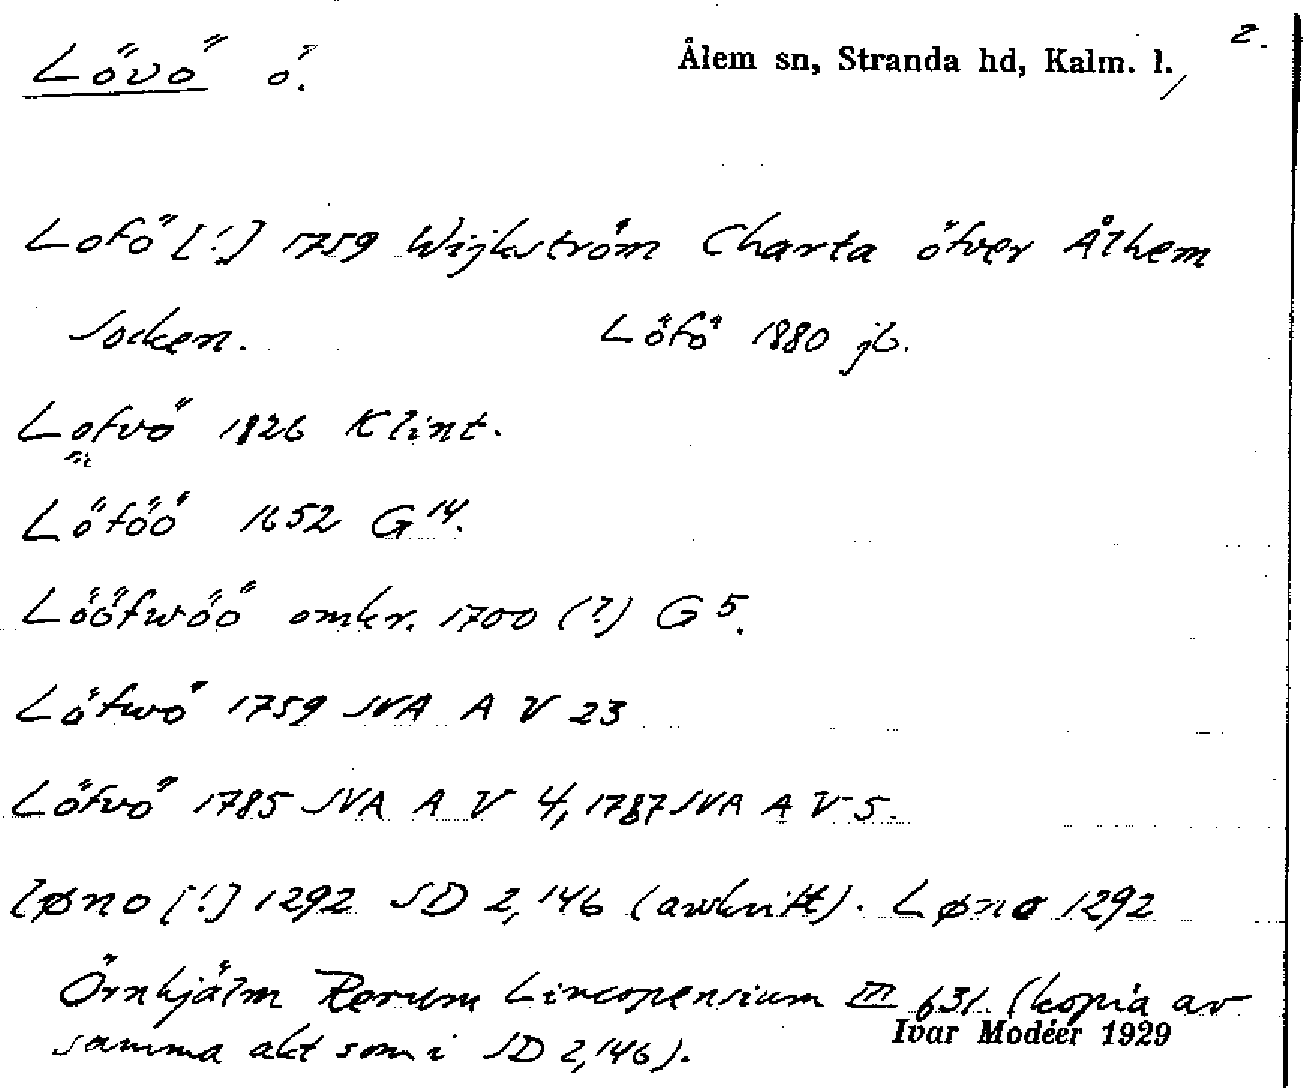 Lövö ö. Ålem sn, Stranda hd, Kalm. l. 2.
Lofö [!] 1759 Wijkström Charta öfver Ålhem
Socken. Löfö 1880 jb.
Lofvö 1826 Klint.
Löföö 1652 G 14.
Lööfwöö omkr. 1700 (?) G 5.
Löfwö 1759 SVA A V 23
Löfvö 1785 SVA A V 4, 1787 SVA A V 5.
løno [!] 1292 SD 2,146 (avskrift). Løno 1292
Örnhjälm Rerum Lincopensium III 631. (kopia av
samma akt som i SD 2,146).
Ivar Modéer 1929